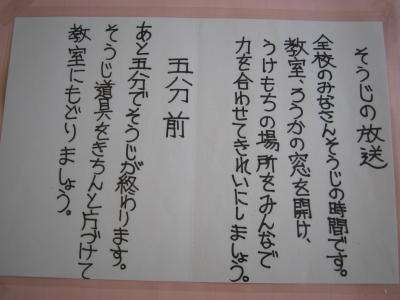 そうじの放送
全校のみなさんそうじの時間です。
教室、ろうかの窓を開け、
うけもちの場所をみんなで
力を合わせてきれいにしましょう。
五分前
あと五分でそうじが終わります。
そうじ道具をきちんと片づけて
教室にもどりましょう。